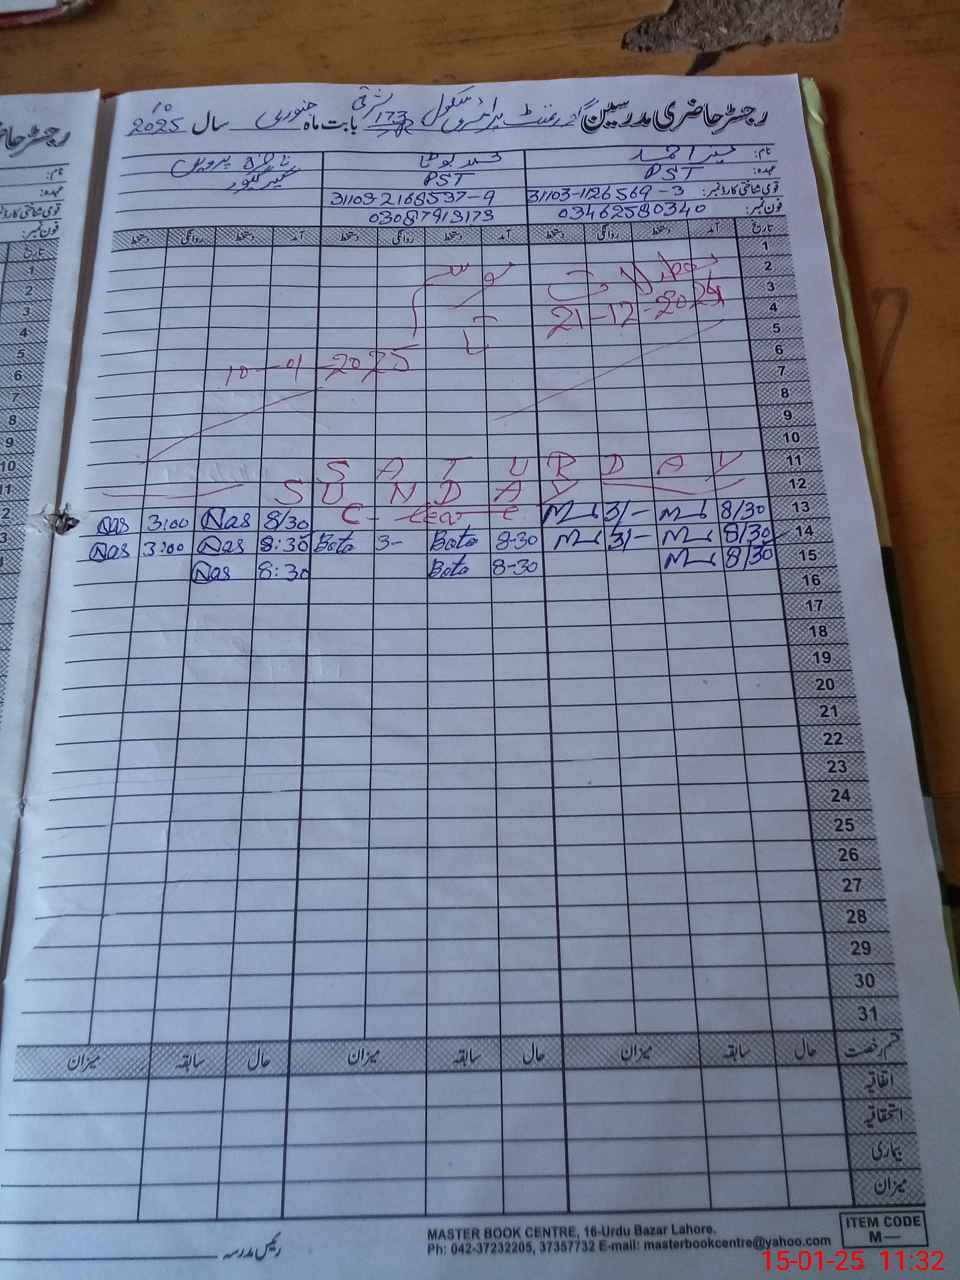 رجسٹر حاضری مدرسین گورنمنٹ پرائمری سکول 173 بابت ماہ جنوری سال 2025
نام:
عہدہ: PST PST
قومی شناختی کارڈ نمبر: 31103-1126569-3 31103-2168537-9
فون نمبر: 03462580340 03087913173
تاریخ آمد دستخط روانگی دستخط آمد دستخط روانگی دستخط آمد دستخط روانگی دستخط
1
2
3
4 21-12-2024
5
6
7 10-01-2025
8
9
10
11 SATURDAY
12 SUNDAY
13 8/30 3/- C-leave 8/30 Nas 3:00 Nas
14 8/30 3/- 8-30 Bota 3- Bota 8:30 Nas 3:00 Nas
15 8/30 8-30 Bota 8:30 Nas
16
17
18
19
20
21
22
23
24
25
26
27
28
29
30
31
قسم رخصت حال سابقہ میزان حال سابقہ میزان حال سابقہ میزان
اتفاقیہ
استحقاقیہ
بیماری
میزان
رئیس مدرسہ
MASTER BOOK CENTRE, 16-Urdu Bazar Lahore.
Ph: 042-37232205, 37357732 E-mail: masterbookcentre@yahoo.com
ITEM CODE
M—
15-01-25 11:32